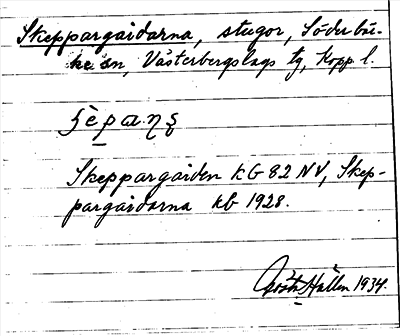 Skeppargaidarna, stugor, Söderbär-
ke sn, Västerbergslags tg, Kopp. l.
Skeppargaiden KG 82 NV, Skep-
pargaidarna kb 1928.
Gösta Hallén 1934.